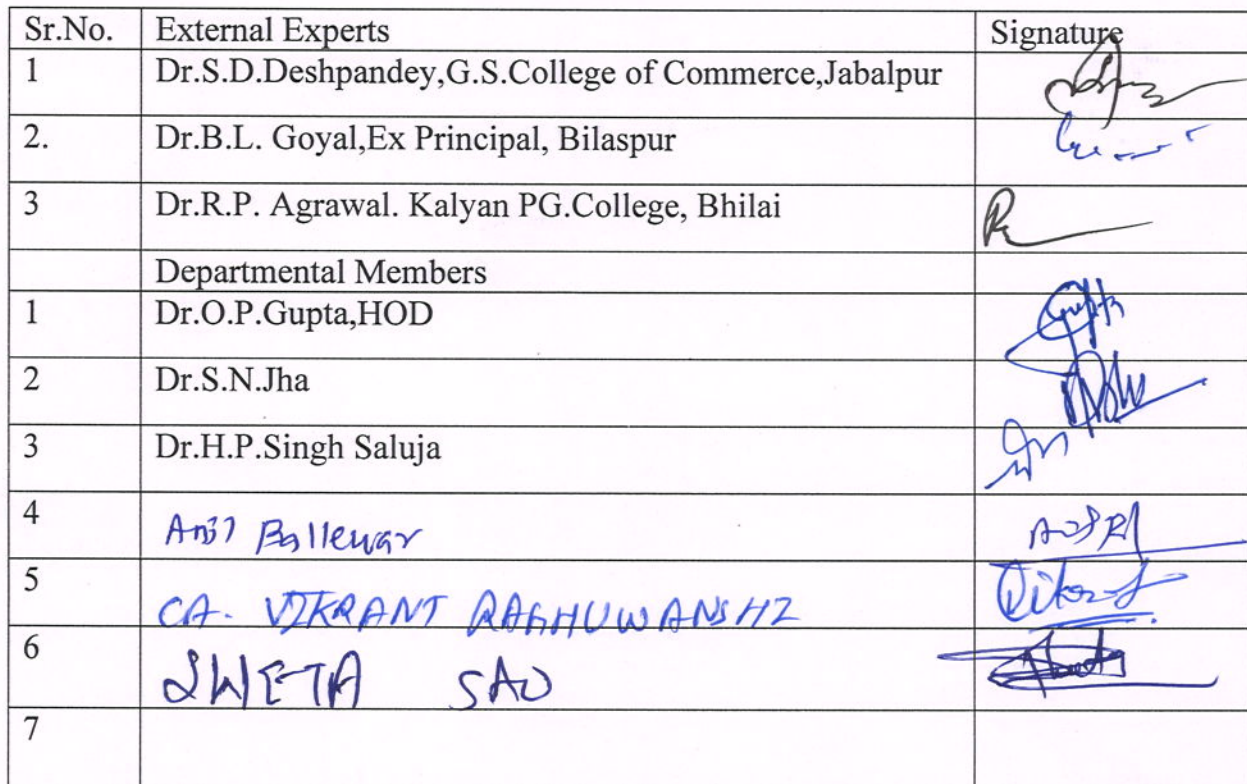 Sr.No. External Experts Signature
1 Dr.S.D.Deshpandey,G.S.College of Commerce,Jabalpur
2. Dr.B.L. Goyal,Ex Principal, Bilaspur
3 Dr.R.P. Agrawal. Kalyan PG.College, Bhilai
Departmental Members
1 Dr.O.P.Gupta,HOD Gupta
2 Dr.S.N.Jha
3 Dr.H.P.Singh Saluja
4 Ballewar
5 CA. VIKRANT RAGHUWANSHI
6 SWETA SAO
7